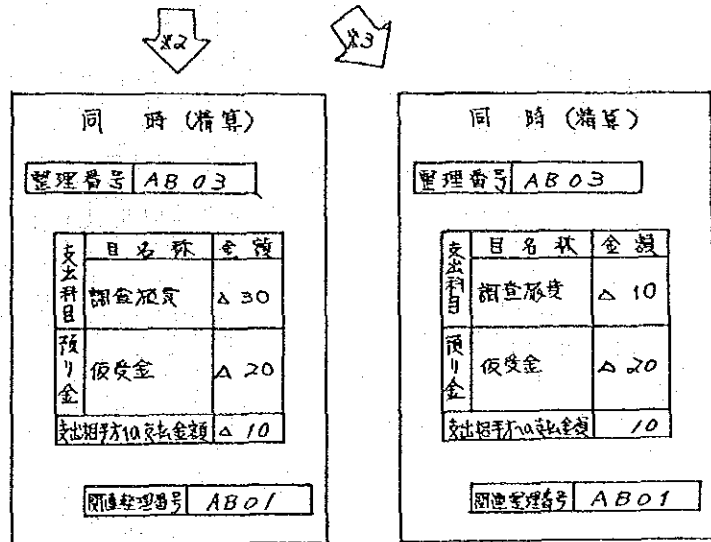 ※2
※3
同 時 (精算)
整理番号 AB03
支出科目 目名称 金額
調査旅費 △30
預り金 仮受金 △20
支出相手方への支払金額 △10
関連整理番号 AB01
同 時 (精算)
整理番号 AB03
支出科目 目名称 金額
調査旅費 △10
預り金 仮受金 △20
支出相手方への支払金額 10
関連整理番号 AB01